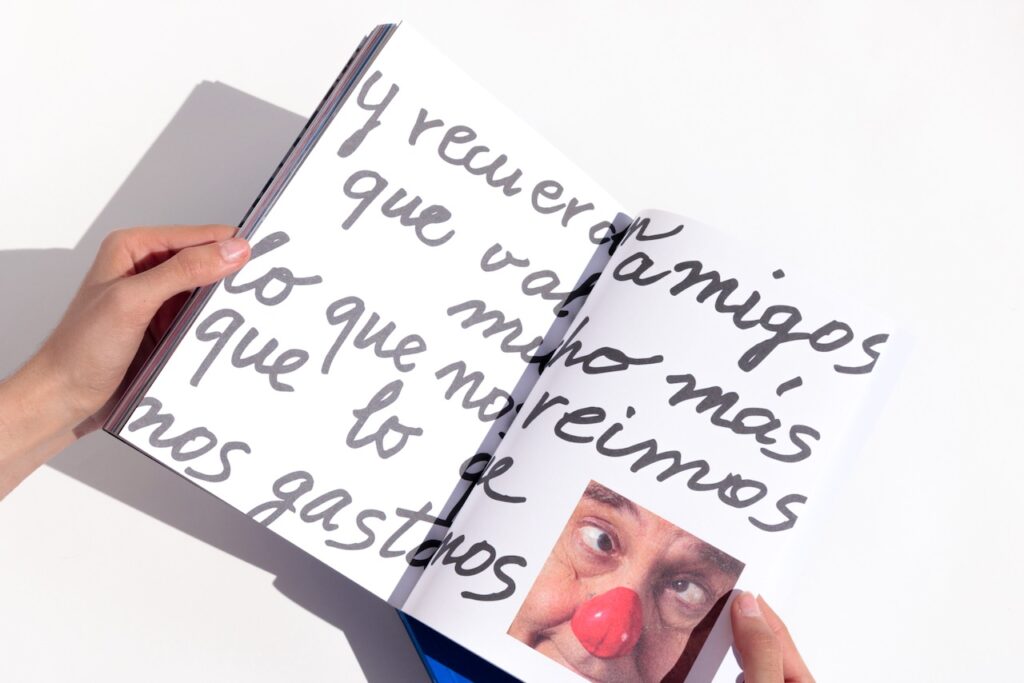 Y recuerdan amigos
que mucho más
lo que nos reimos
que lo a
nos gastamos